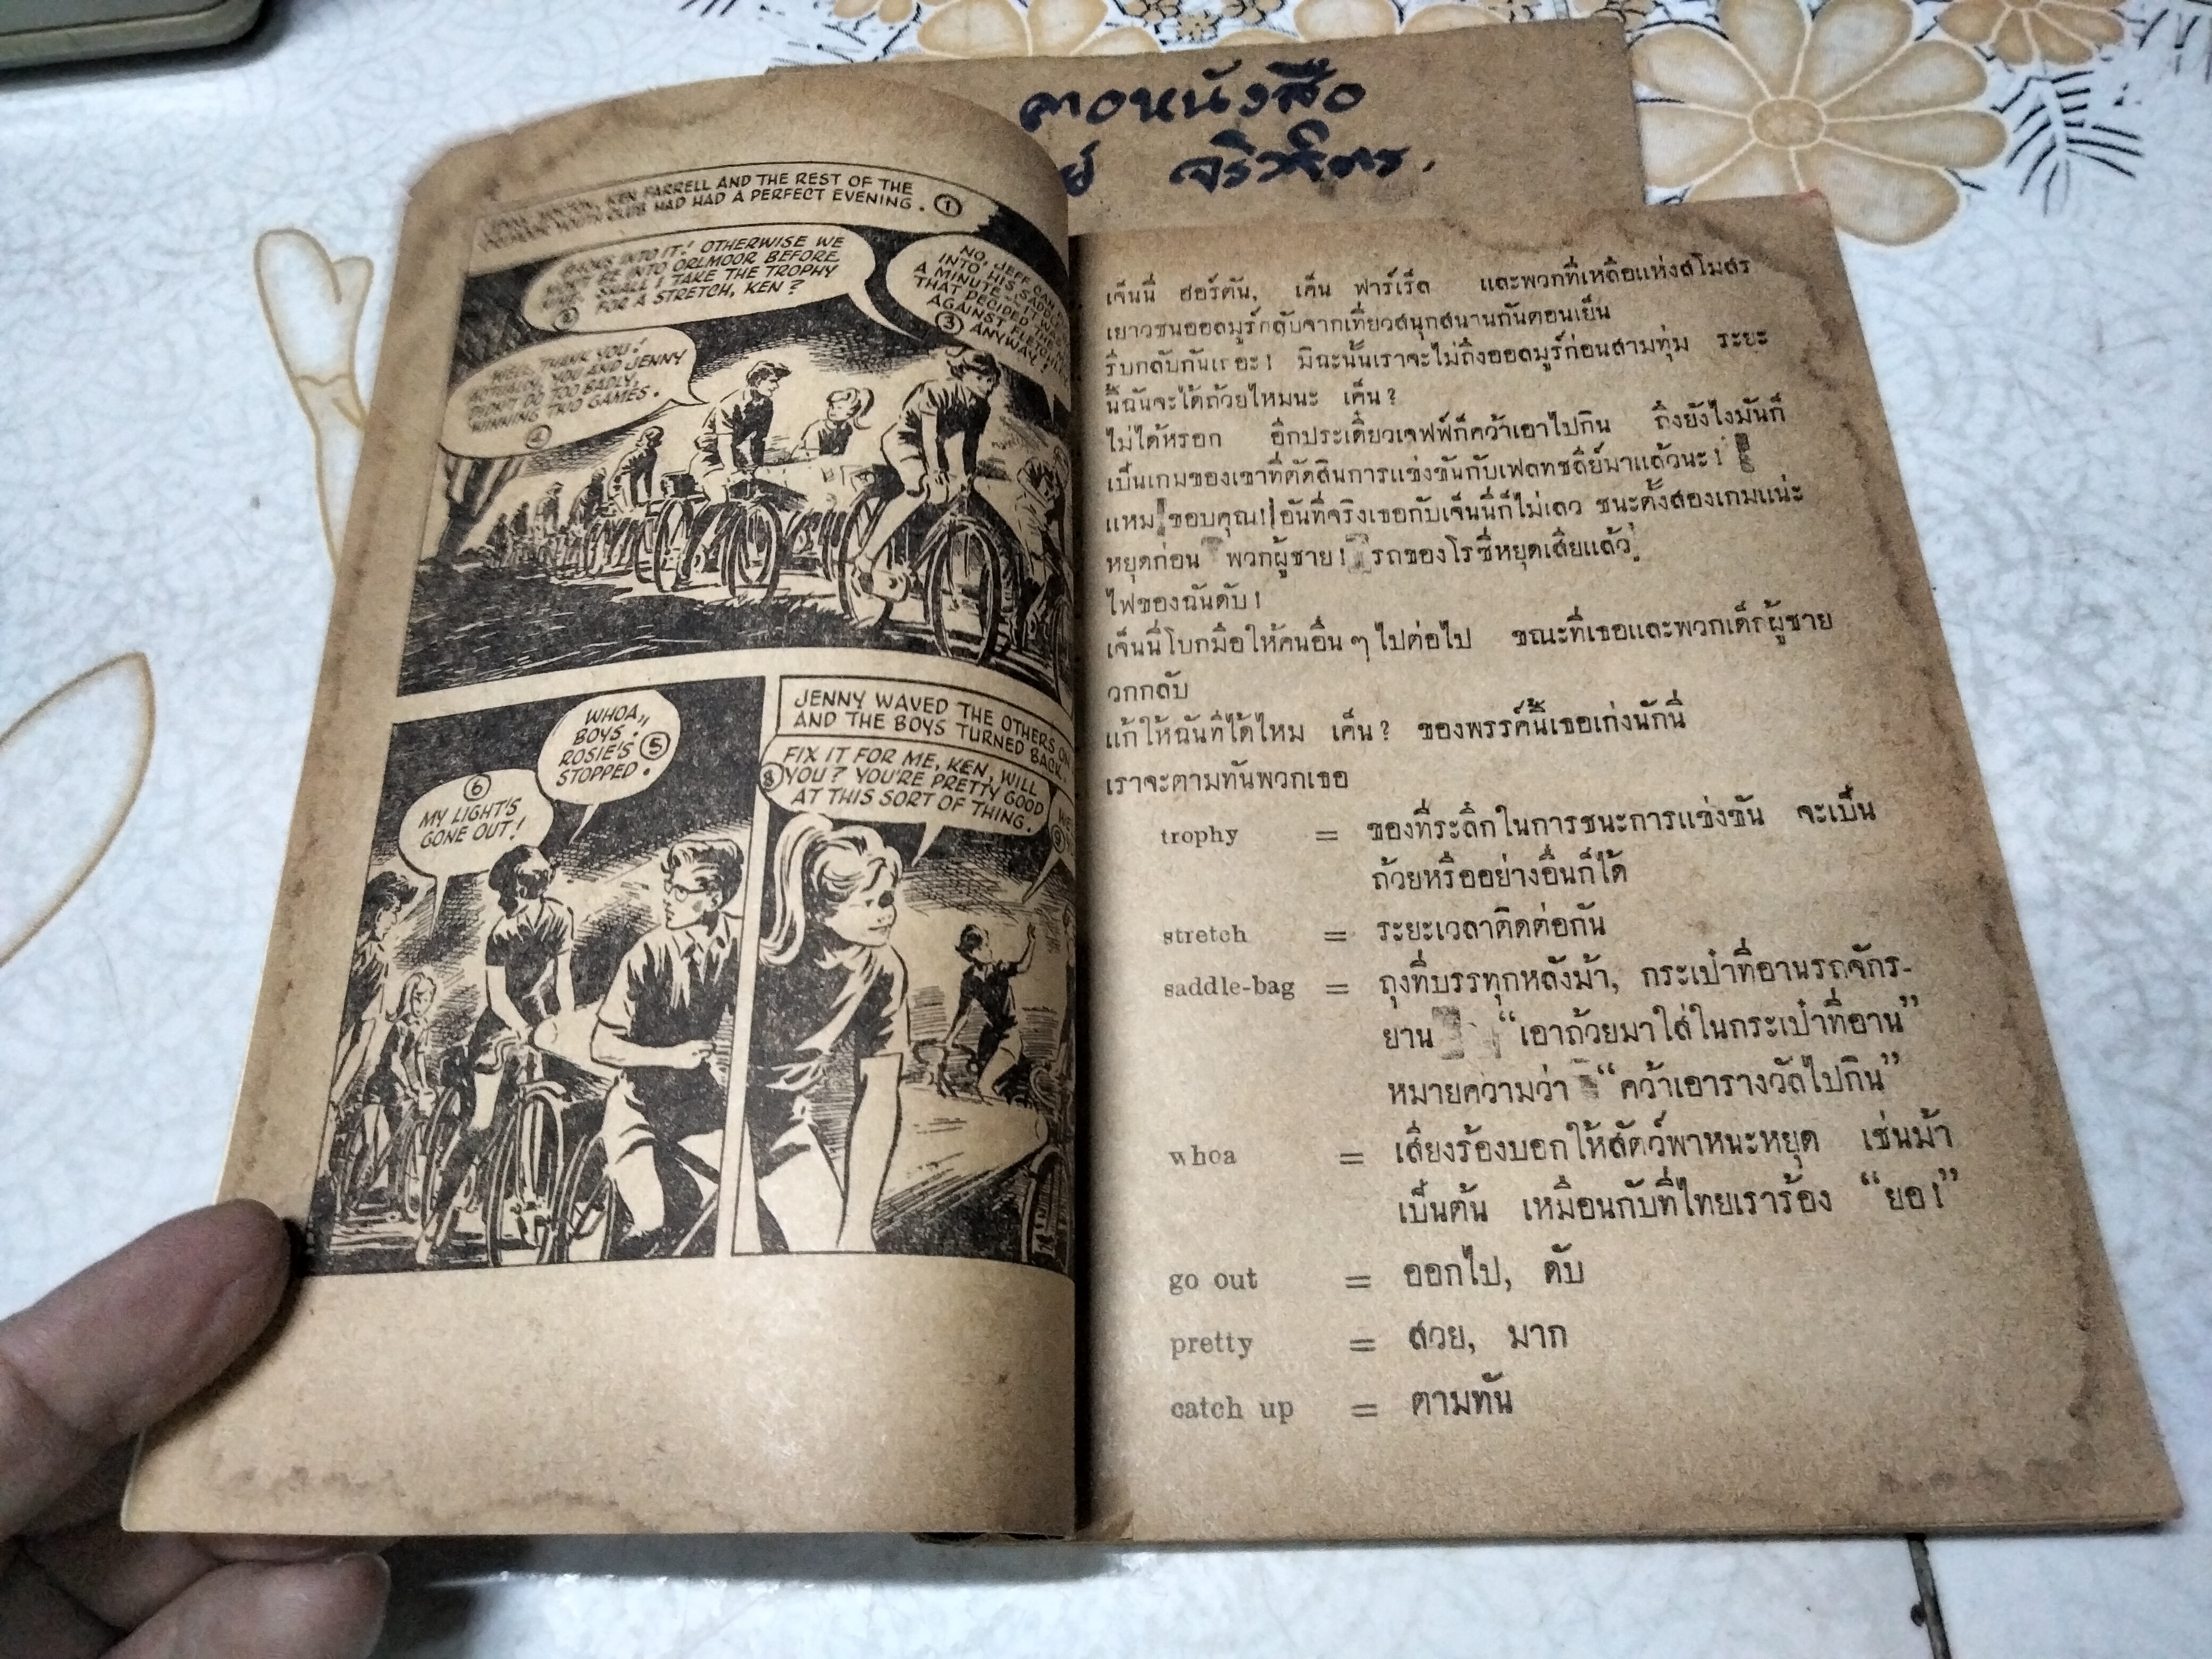 คอหนังสือ
KEN FARRELL AND THE REST OF THE
YOUTH CLUB HAD HAD A PERFECT EVENING. ①
BACKS INTO IT! OTHERWISE WE
WON'T BE INTO ORLMOOR BEFORE
NINE. SHALL I TAKE THE TROPHY
FOR A STRETCH, KEN?
②
NO, JEFF CAN
INTO HIS SADDLE
A MINUTE
THAT DECIDED THE
AGAINST FLETCHLEY
③ ANYWAY!
WELL, THANK YOU!
ACTUALLY, YOU AND JENNY
DIDN'T DO TOO BADLY,
WINNING TWO GAMES.
④
WHOA,
BOYS!
ROSIE'S ⑤
STOPPED.
⑥
MY LIGHT'S
GONE OUT!
JENNY WAVED THE OTHERS ON
AND THE BOYS TURNED BACK.
FIX IT FOR ME, KEN, WILL
⑧ YOU? YOU'RE PRETTY GOOD
AT THIS SORT OF THING.
⑨
เจ็นนี่ ฮอร์ตัน, เค็น ฟาร์เร็ล และพวกที่เหลือแห่งสโมสร
เยาวชนออลมูร์กลับจากเที่ยวสนุกสนานกันตอนเย็น
รีบกลับกันเถอะ! มิฉะนั้นเราจะไม่ถึงออลมูร์ก่อนสามทุ่ม ระยะ
นี้ฉันจะได้ถ้วยไหมนะ เค็น?
ไม่ได้หรอก อีกประเดี๋ยวเจฟฟ์ก็คว้าเอาไปกิน ถึงยังไงมันก็
เป็นเกมของเขาที่ตัดสินการแข่งขันกับเฟลทชลีย์มาแล้วนะ!
แหม ขอบคุณ! อันที่จริงเธอกับเจ็นนี่ก็ไม่เลว ชนะตั้งสองเกมแน่ะ
หยุดก่อน พวกผู้ชาย! รถของโรซี่หยุดเสียแล้ว
ไฟของฉันดับ!
เจ็นนี่โบกมือให้คนอื่น ๆ ไปต่อไป ขณะที่เธอและพวกเด็กผู้ชาย
วกกลับ
แก้ให้ฉันทีได้ไหม เค็น? ของพรรค์นี้เธอเก่งนักนี่
เราจะตามทันพวกเธอ
trophy = ของที่ระลึกในการชนะการแข่งขัน จะเป็น
ถ้วยหรืออย่างอื่นก็ได้
stretch = ระยะเวลาติดต่อกัน
saddle-bag = ถุงที่บรรทุกหลังม้า, กระเป๋าที่อานรถจักร-
ยาน “เอาถ้วยมาใส่ในกระเป๋าที่อาน”
หมายความว่า “คว้าเอารางวัลไปกิน”
whoa = เสียงร้องบอกให้สัตว์พาหนะหยุด เช่นม้า
เป็นต้น เหมือนกับที่ไทยเราร้อง “ยอ!”
go out = ออกไป, ดับ
pretty = สวย, มาก
catch up = ตามทัน